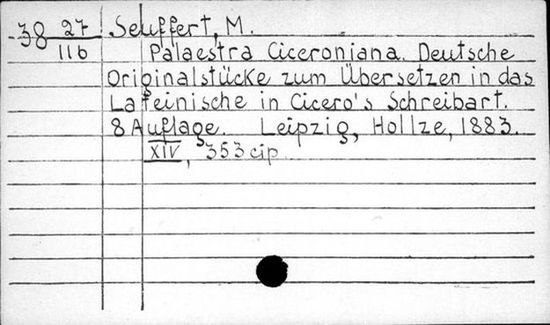 38 27/116 Seuffert, M.
Palaestra Ciceroniana. Deutsche
Originalstücke zum Übersetzen in das
Lateinische in Cicero's Schreibart.
8 Auflage. Leipzig, Hollze, 1883.
XIV, 353 cip.